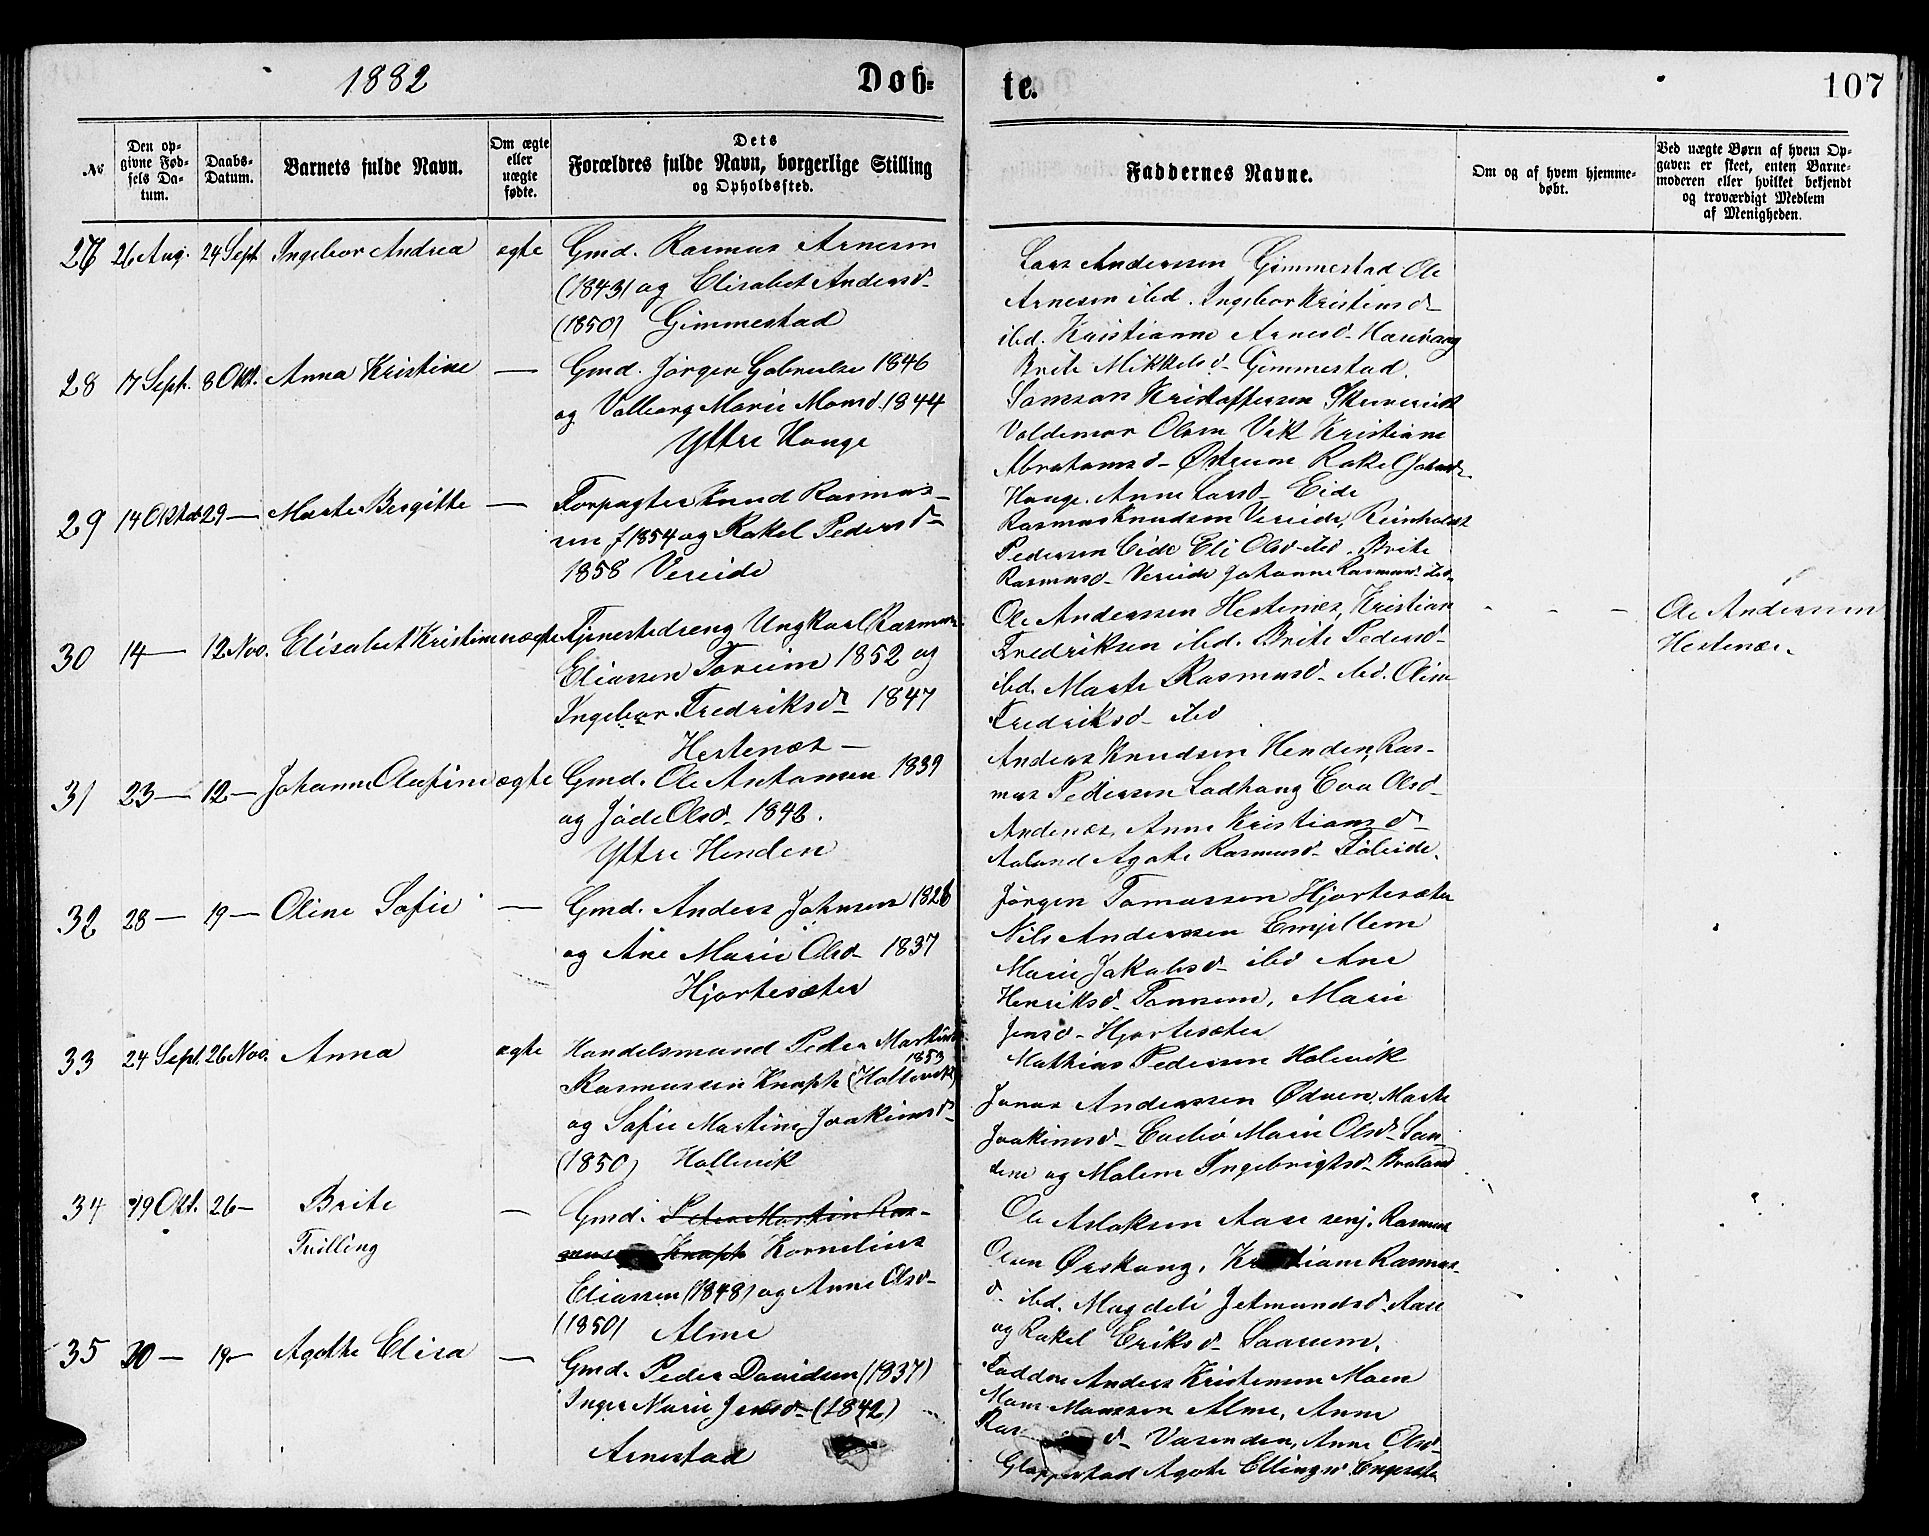 1882 Døb-
te. 107
No
Den op-
givne Fød-
sels Da-
tum.
Daabs-
Datum.
Barnets fulde Navn.
Om ægte
eller
uægte
fødte.
Dets
Forældres fulde Navn, borgerlige Stilling
og Opholdssted.
Faddernes Navne.
Om og af hvem hjemme-
døbt.
Ved uægte Børn af hvem Op-
gaven er skeet, enten Barne-
moderen eller hvilket bekjendt
og troværdigt Medlem
af Menigheden.
27 26 Aug. 24 Sept Ingebor Andrea egte
Gmd. Rasmus Arnesen
(1843) og Elisabet Andersd-
(1850) Gimmestad
Lars Anderssen Gimmestad Ole
Arnesen ibd. Ingebor Kristensd-
ibd. Kristianne Arnesd-
Brite Mikkelsd- Gimmestad.
28 17 Sept. 8 Okt. Anna Kristine —
Gmd. Jørgen Gabrielse 1846
og Valborg Marie Monsd. 1844
Yttre Hauge
Samson Kristoffersen
Valdemar Olsen Vik Kristiane
Abrahamsd- Rakel
Hauge. Anne Larsd- Eide
29 14 Oktob 29 — Marte Bergitte —
Forpagter Knud Rasmus-
sen f 1854 og Rakel Pedersd-
1858 Vereide
Rasmus Knudsen Vereide, Reinholdt
Pedersen Eide Eli Olsd ibd. Brite
Rasmusd- Vereide Johanne Rasmusd- ibd
30 14 — 12 Nov. Elisabet Kristine uægte
Tjenestedreng Ungkarl Rasmus
Eliassen Foreim 1852 og
Ingebor Fredriksd- 1847
Hestenæs —
Ole Anderssen Hestenæs, Kristian
Fredriksen ibd. Brite Pedersd-
ibd. Marte Rasmusd- ibd. Oline
Fredriksd- ibd
- - - Ole Anderssen
Hestenæs.
31 23 — 12 — Johanne Olufine ægte
Gmd. Ole Antonsen 1839
og Jøde Olsd- 1842.
Yttre Henden
Anders Knudsen Henden, Ras-
mus Pedersen Ladhaug Eva Olsd-
Andenæs, Anne Kristiansd-
Aaland Agate Rasmusd- Føleide.
32 28 — 19 — Oline Sofie —
Gmd. Anders Johnsen 1826
og Ane Marie Olsd- 1837
Hjortesæter
Jørgen Tomassen Hjortesæter
Nils Anderssen Emjellem
Marie Jakobsd- ibd Ane
Henriksd- Marie
Jensd- Hjortesæter
33 24 Sept. 26 Nov. Anna ægte
Handelsmand Peder Martin
1853
Rasmussen Knaph (Hollevik)
og Sofie Martine Joakimsd-
(1850) Hollevik
Mathias Pedersen Holevik
Jonas Anderssen Ødven, Marte
Joakimsd- Marie Olsd- San-
dene og Malene Ingebrigtsd-
34 19 Okt. 26 — Brite —
Tvilling
Gmd. Peder Martin Ras-
Knaph Kornelius
Eliassen (1848) og Anne Olsd-
(1850) Alme
Ole Aslaksen Aase senj. Rasmus
Olsen Ørskaug, Kristiane Rasmus-
d- ibd. Magdeli Jetmundsd- Aase
og Rakel Eriksd- Saarem.
35 20 — 19 — Agathe Elisa —
Gmd. Peder Davidsen (1837)
Inger Marie Jensd- (1842)
Arnestad
Faddre Anders Kristensen Moen
Mons Monssen Alme, Anne
Ras d- Vasenden, Anne Olsd-
Gloppestad Agate Ellingsd